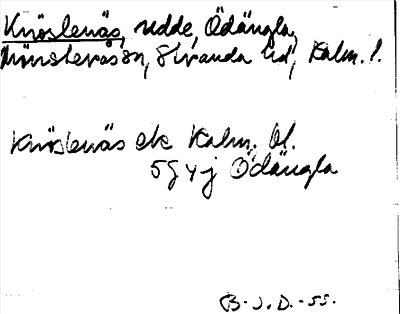 Knöslenäs, udde, Ödängla,
Mönsterås sn, Stranda hd, Kalm. l.
Knöslenäs ek Kalm. bl.
5G4j Ödängla
B.J.D. -55.